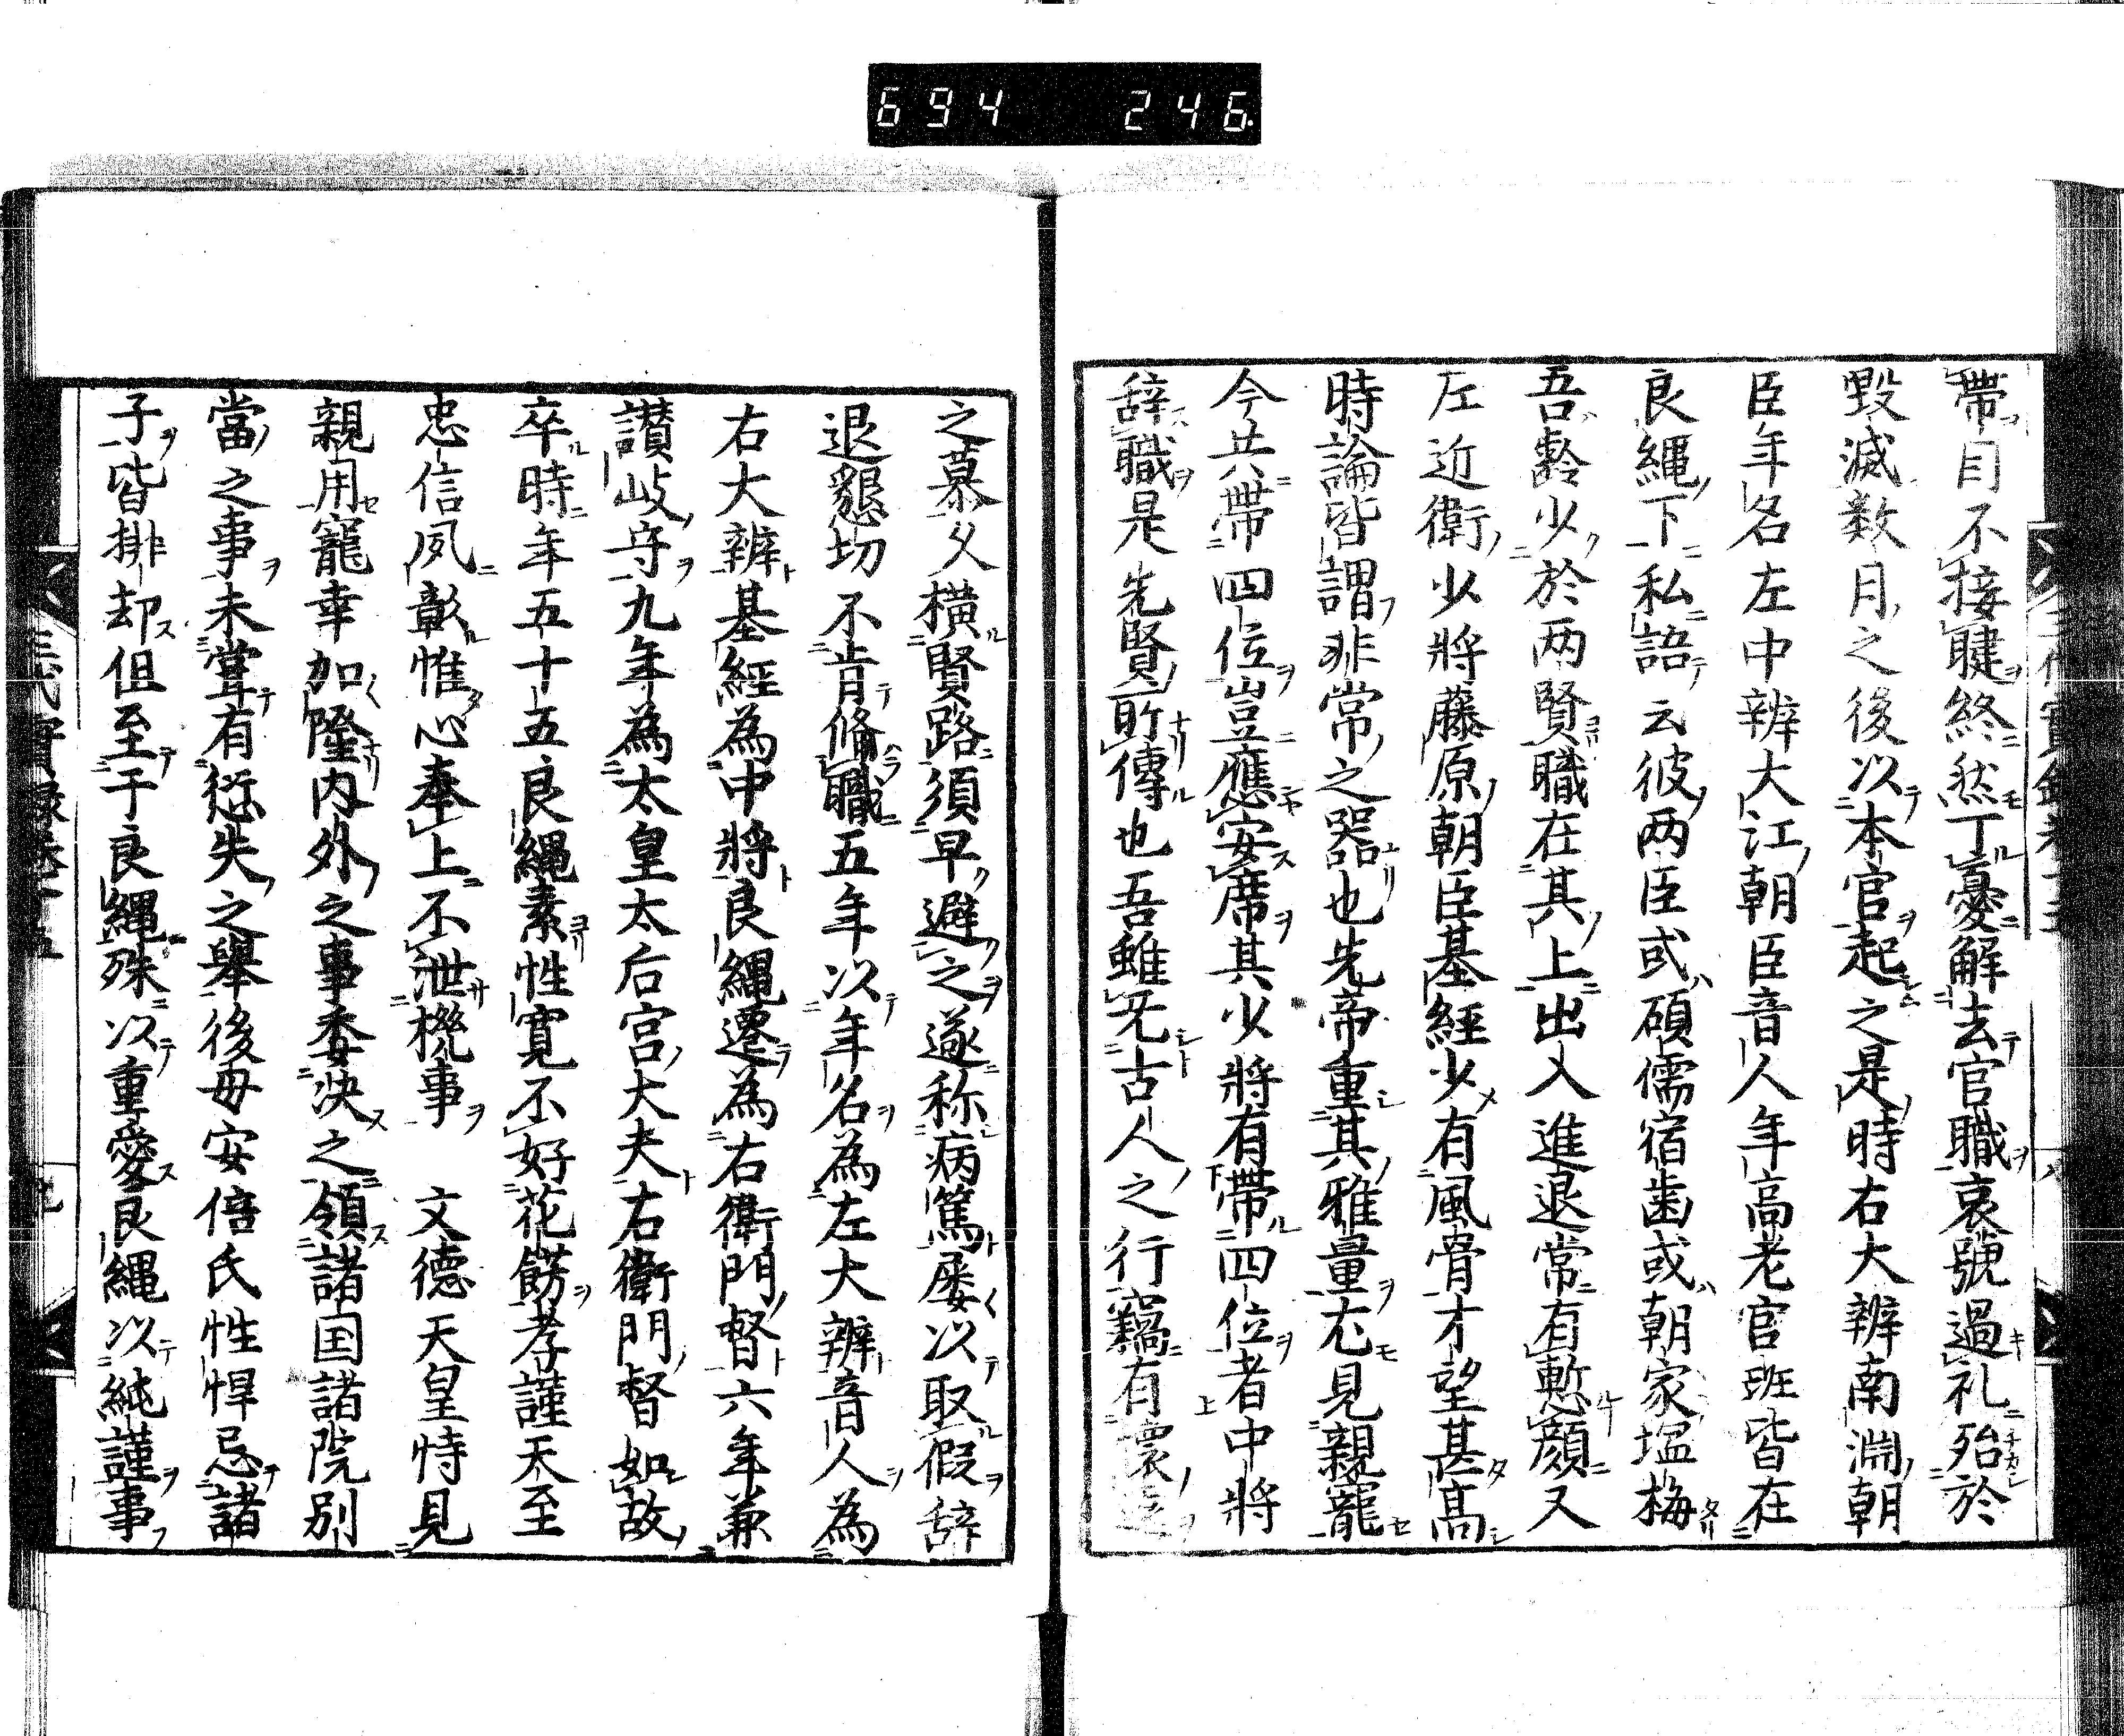 694 246
帶目不接睫終然丁憂解去官職哀號過礼殆於
毀滅数月之後以本官起之是時右大辨南淵朝
臣年名左中辨大江朝臣音人年高老官班皆在
良縄下私語云彼两臣或碩儒宿歯或朝家塩梅
吾齢少於两賢職在其上出入進退常有慙顔又
左近衛少將藤原朝臣基經少有風骨才望甚高
時論皆謂非常之器也先帝重其雅量尤見親寵
今共帶四位豈應安席其少將有帶四位者中將
辞職是先賢所傳也吾雖无古人之行竊有懐遠
之慕久横賢路須早避之遂称病篤屡以取假辞
退懇切不肯脩職五年以年名為左大辨音人為
右大辨基經為中將良縄遷為右衛門督六年兼
讃岐守九年為太皇太后宮大夫右衛門督如故
卒時年五十五良縄素性寛不好花餝孝謹天至
忠信夙彰惟心奉上不泄機事 文德天皇恃見
親用寵幸加隆内外之事委决之領諸国諸院別
當之事未嘗有愆失之舉後毋安倍氏性悍忌諸
子皆排却但至于良縄殊以重愛良縄以純謹事
三代實録卷十五